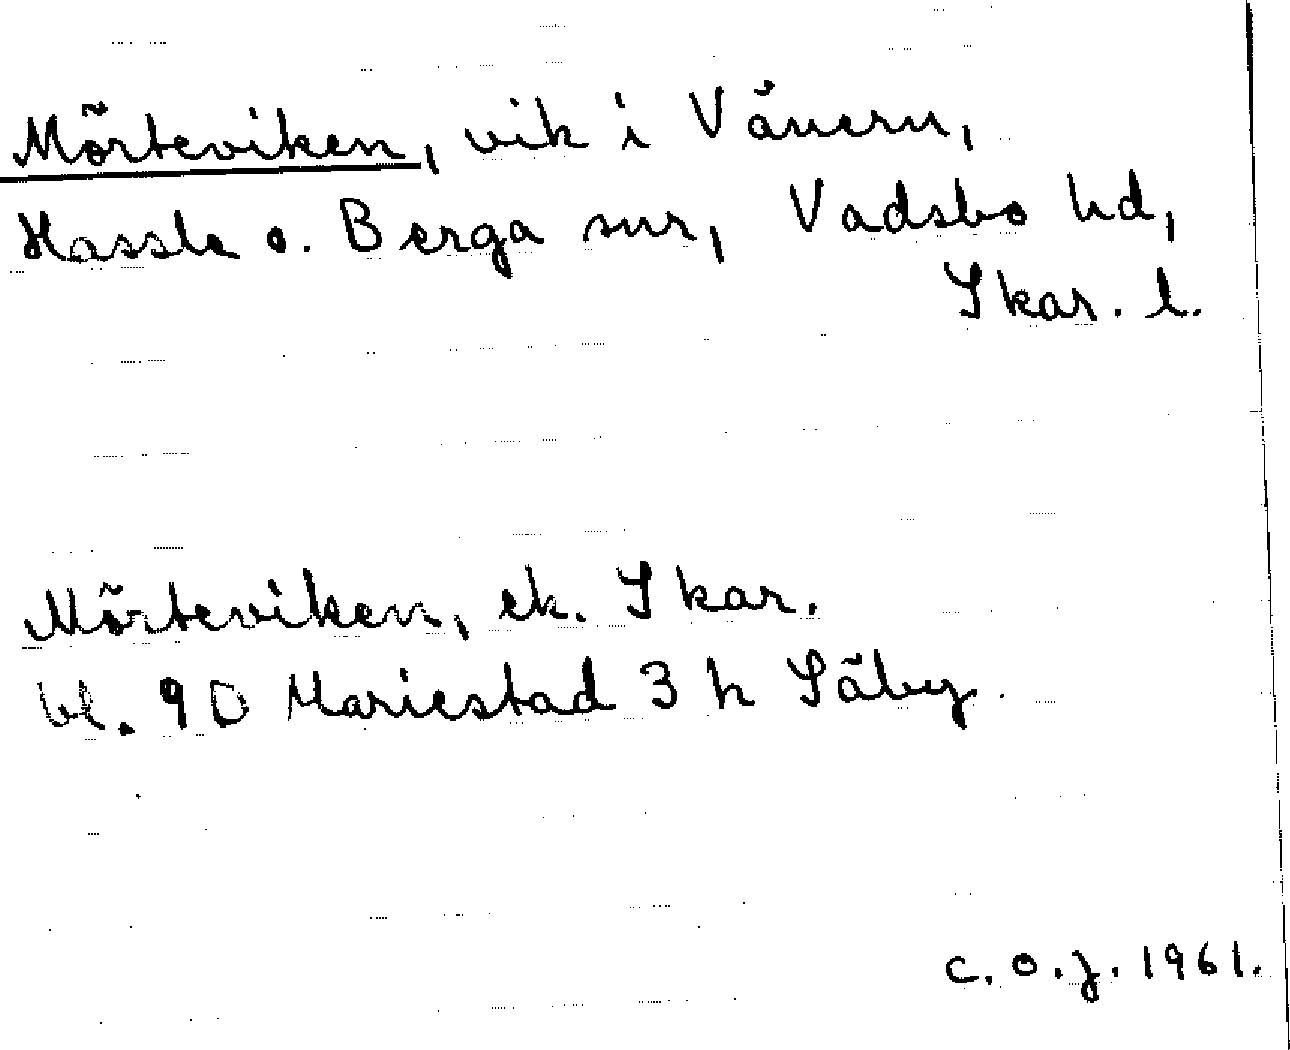 Mörteviken, vik i Vänern,
Hassle o. Berga snr, Vadsbo hd,
Skar. l.
Mörteviken, ek. Skar.
bl. 9D Mariestad 3 h Säby.
C. O. J. 1961.